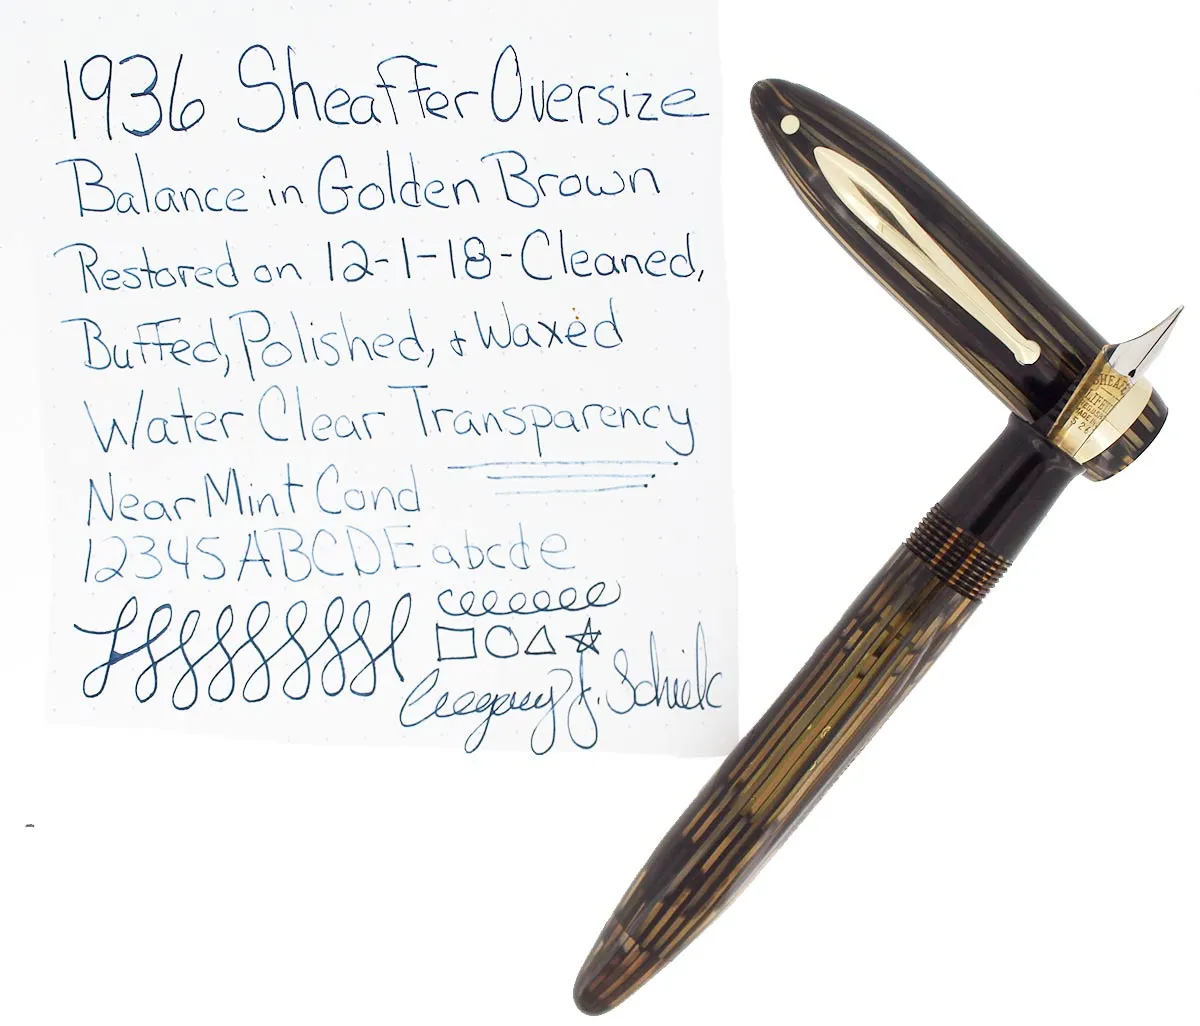 1936 Sheaffer Oversize
Balance in Golden Brown
Restored on 12-1-18-Cleaned,
Buffed, Polished, & Waxed
Water Clear Transparency
Near Mint Cond
12345 ABCDE abcde
eeeeeee
Gregory J. Schielc
SHEAFF
LIFET
MADE IN